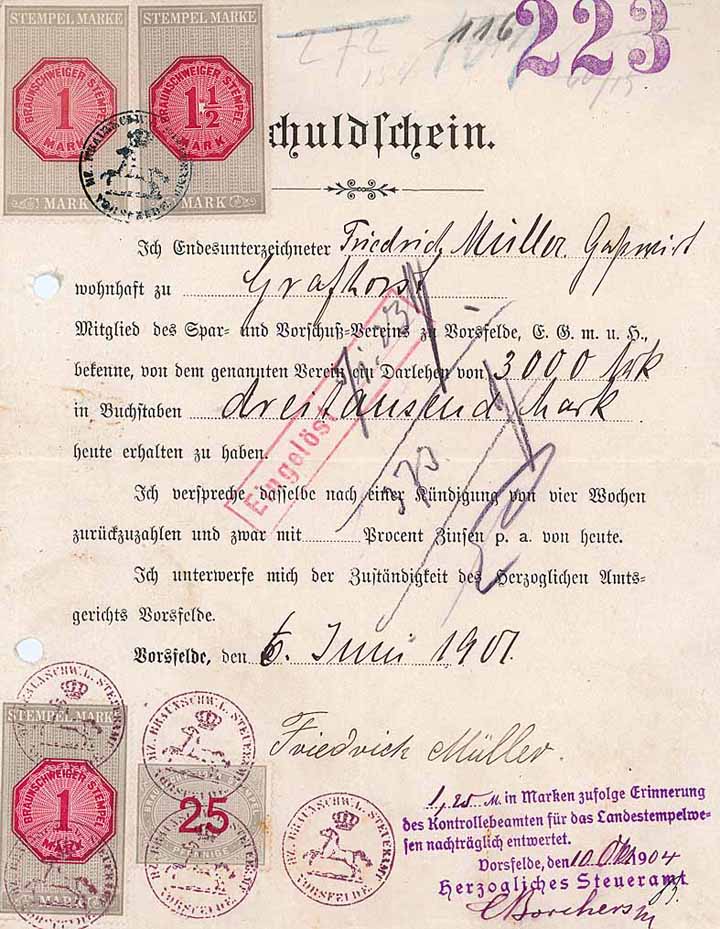 STEMPEL MARKE STEMPEL MARKE
BRAUNSCHWEIGER STEMPEL BRAUNSCHWEIGER STEMPEL
1 1 1/2
MARK MARK
MARK MARK
HZ. BRAUNSCHW. L. STEUERAMT VORSFELDE
272 116
223
chuldſchein.
Ich Endesunterzeichneter Friedrich Müller. Gaſtwirt
wohnhaft zu Grafhorst
Mitglied des Spar- und Vorſchuß-Vereins zu Vorsfelde, E. G. m. u. H.,
bekenne, von dem genannten Verein ein Darlehen von 3000 Mrk
in Buchſtaben dreitausend Mark
heute erhalten zu haben.
Eingelöst
Ich verſpreche dasſelbe nach einer Kündigung von vier Wochen
zurückzuzahlen und zwar mit Procent Zinſen p. a. von heute.
Ich unterwerfe mich der Zuſtändigkeit des Herzoglichen Amts-
gerichts Vorsfelde.
Vorsfelde, den 6. Juni 1901.
Friedrich Müller.
HZ. BRAUNSCHW. L. STEUERAMT VORSFELDE
STEMPEL MARKE
BRAUNSCHWEIGER STEMPEL
1
MARK
MARK
HZ. BRAUNSCHW. L. STEUERAMT VORSFELDE
25
PFENNIGE
HZ. BRAUNSCHW. L. STEUERAMT
VORSFELDE.
1,25 M. in Marken zufolge Erinnerung
des Kontrollebeamten für das Landestempelwe-
sen nachträglich entwertet.
Vorsfelde, den 10. Okt. 1904
Herzogliches Steueramt
C Borchers